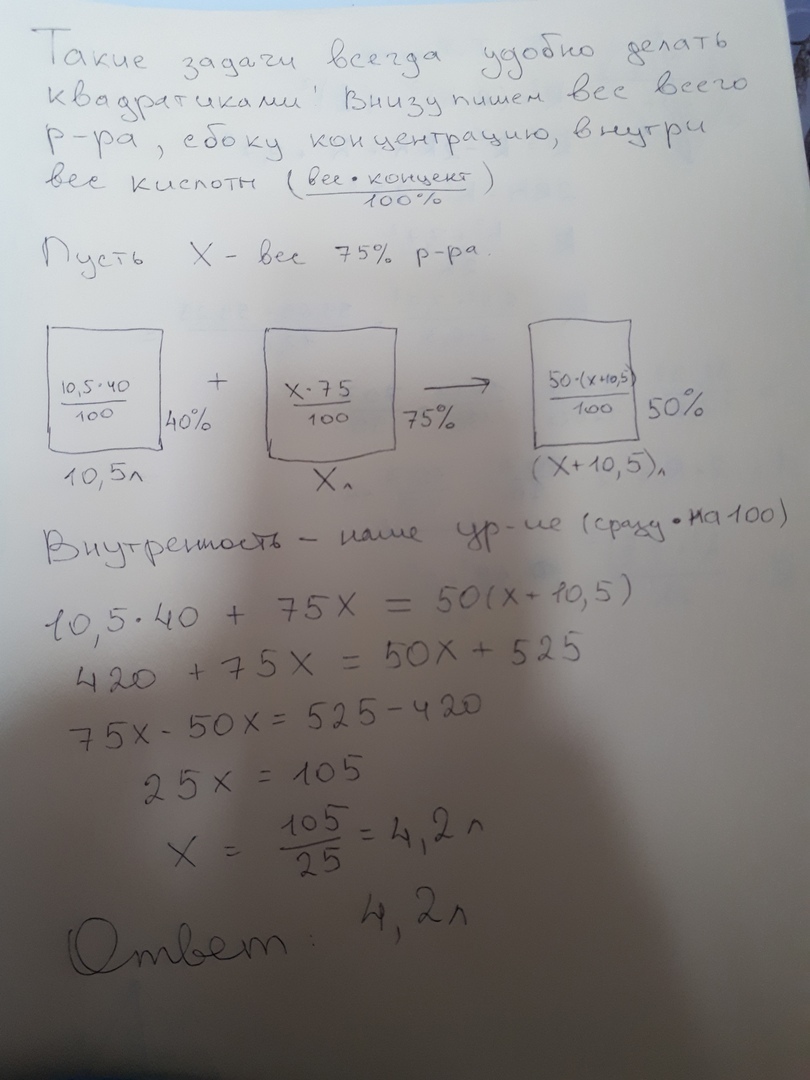 Такие задачи всегда удобно делать
квадратиками! Внизу пишем вес всего
р-ра, сбоку концентрацию, внутри
вес кислоты (вес • концент / 100%)
Пусть X - вес 75% р-ра.
10,5·40 / 100 40% + X·75 / 100 75% → 50·(X+10,5) / 100 50%
10,5л Xл (X+10,5)л
Внутренность - наше ур-ие (сразу • на 100)
10,5·40 + 75X = 50(X+10,5)
420 + 75X = 50X + 525
75X - 50X = 525 - 420
25X = 105
X = 105 / 25 = 4,2 л
Ответ: 4,2л